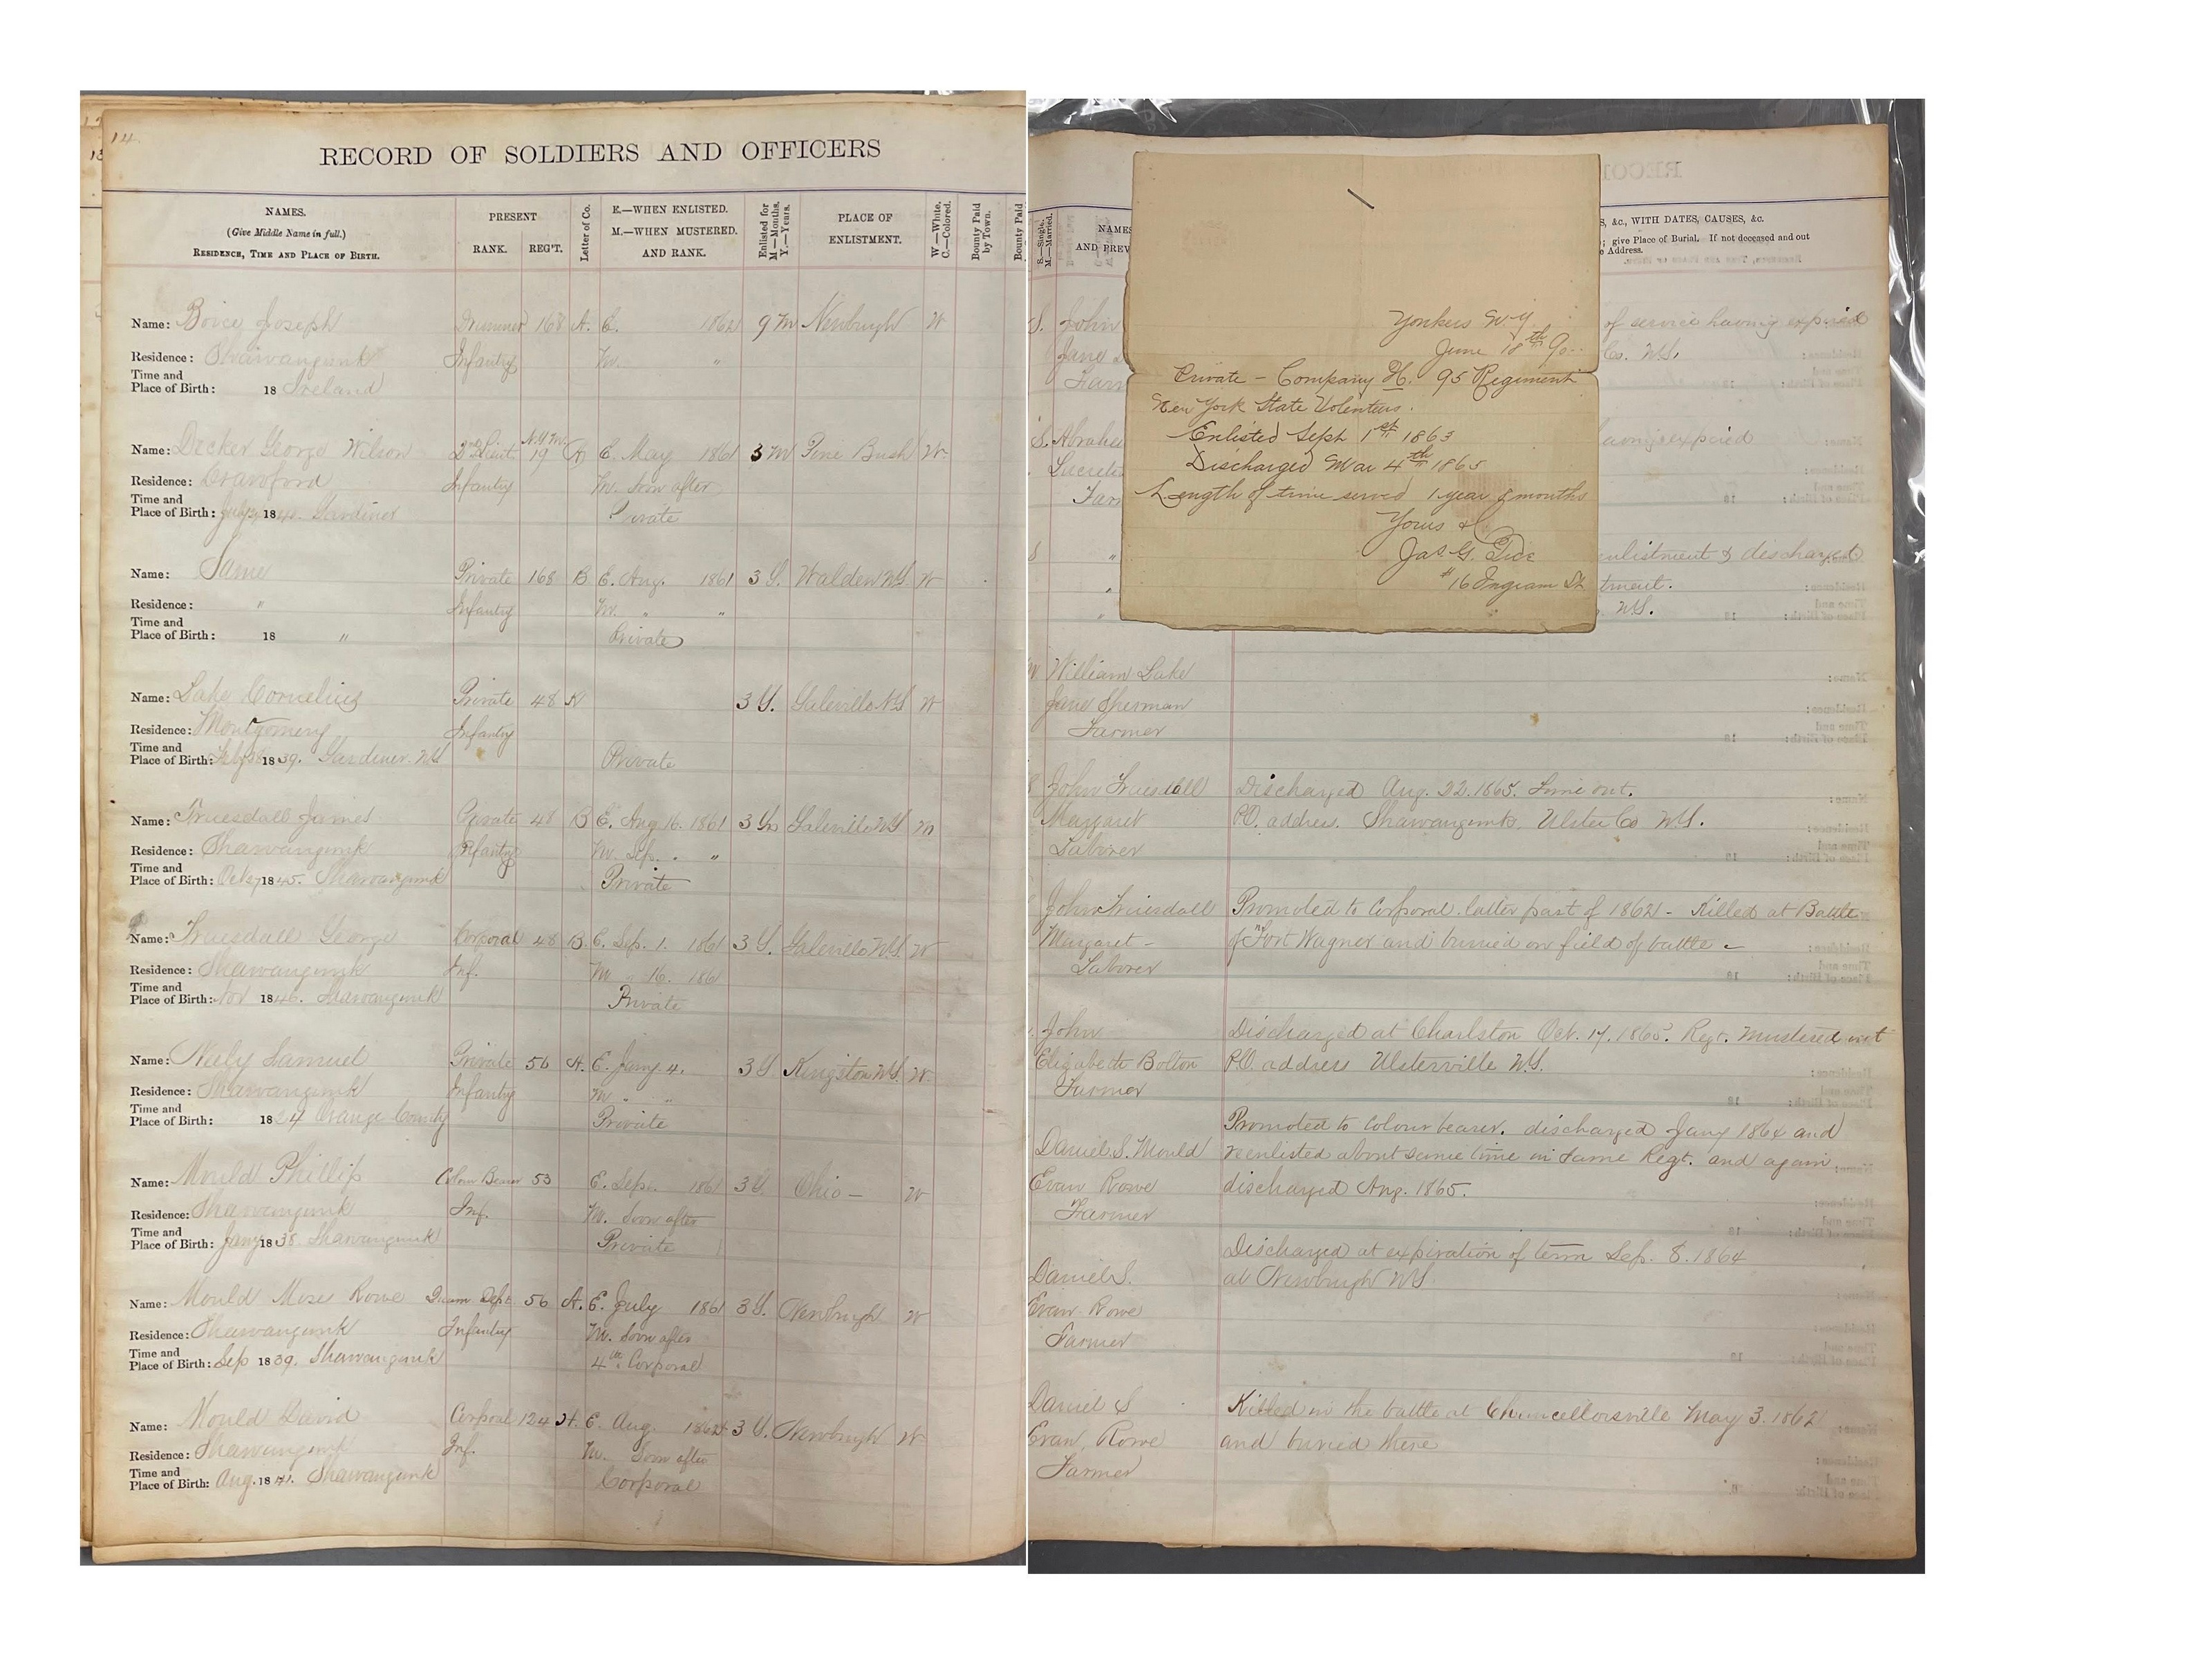 14.
RECORD OF SOLDIERS AND OFFICERS
NAMES.
(Give Middle Name in full.)
RESIDENCE, TIME AND PLACE OF BIRTH.
PRESENT
RANK. REG'T.
Letter of Co.
E.—WHEN ENLISTED.
M.—WHEN MUSTERED.
AND RANK.
Enlisted for
M.—Months.
Y.—Years.
PLACE OF
ENLISTMENT.
W.—White.
C.—Colored.
Bounty Paid
by Town.
Bounty Paid
Name: Boice Joseph Drummer 168 A. E. 1862 9 M Newburgh W
Residence: Shawangunk Infantry M. "
Time and
Place of Birth: 18 Ireland
Name: Decker George Wilson 2nd Lieut N.Y.M. 19 E. May 1861 3 M Pine Bush W.
Residence: Crawford Infantry M. Soon after
Time and
Place of Birth: 18 Gardiner Private
Name: Same Private 168 B E. Aug. 1861 3 Y. Walden N.Y. W
Residence: " Infantry M. " "
Time and
Place of Birth: 18 " Private
Name: Lake Cornelius Private 48 K 3 Y. Galeville N.Y. W
Residence: Montgomery Infantry
Time and
Place of Birth: 1839. Gardiner N.Y. Private
Name: Truesdall James Private 48 B E. Aug 16. 1861 3 Yrs Galeville N.Y.
Residence: Shawangunk Infantry M. Sep. " "
Time and
Place of Birth: Oct 27 1845. Shawangunk Private
Name: Truesdall George Corporal 48 B E. Sep. 1. 1861 3 Y. Galeville N.Y. W
Residence: Shawangunk Inf. M " 16. 1861
Time and
Place of Birth: Nov 1846. Shawangunk Private
Name: Neely Samuel Private 56 A. E. Jany 4. 3 Y Kingston N.Y. W.
Residence: Shawangunk Infantry M " "
Time and
Place of Birth: 1824 Orange County Private
Name: Mould Phillip Colour Bearer 53 E. Sep. 1861 3 Y. Ohio — W
Residence: Shawangunk Inf. M. Soon after
Time and
Place of Birth: Jany 1838. Shawangunk Private
Name: Mould Mose Rowe Dept 56 A. E. July 1861 3 Y. Newburgh W
Residence: Shawangunk Infantry M. Soon after
Time and
Place of Birth: Sep 1839. Shawangunk 4th Corporal
Name: Mould David Corporal 124 H. E. Aug. 1862 3 Y. Newburgh W
Residence: Shawangunk Inf. M. Soon after
Time and
Place of Birth: Aug. 1841. Shawangunk Corporal
S.—Single.
M.—Married.
NAMES
AND PREV
S, &c., WITH DATES, CAUSES, &c.
; give Place of Burial. If not deceased and out
e Address.
Yonkers N.Y.
June 18th 90
Private — Company H. 95 Regiment
New York State Volenteers.
Enlisted Sept 1st 1863
Discharged Mar 4th 1865
Length of time served 1 year 6 months
Yours &c
Jas. G. Tice
#16 Ingram St
S. John of service having expired
Jane Co. N.Y.
Farm
S. Abraha having expired
Lucreti
Farm
S " enlistment & discharged
" tment.
" N.Y.
William Lake
Jane Sherman
Farmer
John Truesdall Discharged Aug. 22. 1865. Time out.
Margaret P.O. address. Shawangunk, Ulster Co. N.Y.
Laborer
John Truesdall Promoted to Corporal. latter part of 1862 - Killed at Battle
Margaret - of Fort Wagner and buried on field of battle -
Laborer
John Discharged at Charlston Oct. 17. 1865. Regt. Mustered out
Elizabeth Bolton P.O. address Ulsterville N.Y.
Farmer
Promoted to Colour bearer. discharged Jany 1864 and
Daniel S. Mould reenlisted about same time in same Regt. and again
Evan Rowe discharged Aug. 1865.
Farmer
Discharged at expiration of term Sep. 8. 1864
Daniel S. at Newburgh N.Y.
Evan Rowe
Farmer
Daniel S Killed in the battle at Chancellorsville May 3. 1862
Evan, Rowe and buried there
Farmer